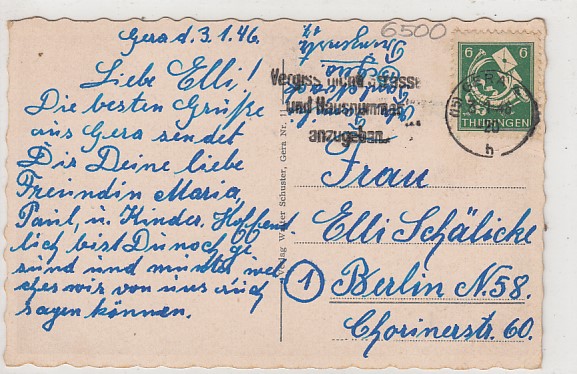 Gera d. 3.1.46.
Liebe Elli!
Die besten Grüße
aus Gera sendet
Dir Deine liebe
Freundin Maria,
Paul, u. Kinder. Hoffend
lich bist Du noch ge
sund und munter wel
ches wir von uns auch
sagen können.
Verlag Walter Schuster, Gera Nr. 11
6500
Vergiss nicht Strasse
und Hausnummer
anzugeben
6 6
THÜRINGEN
GERA
20
h
Frau
Elli Schälicke
1 Berlin N.58.
Chorinerstr. 60.